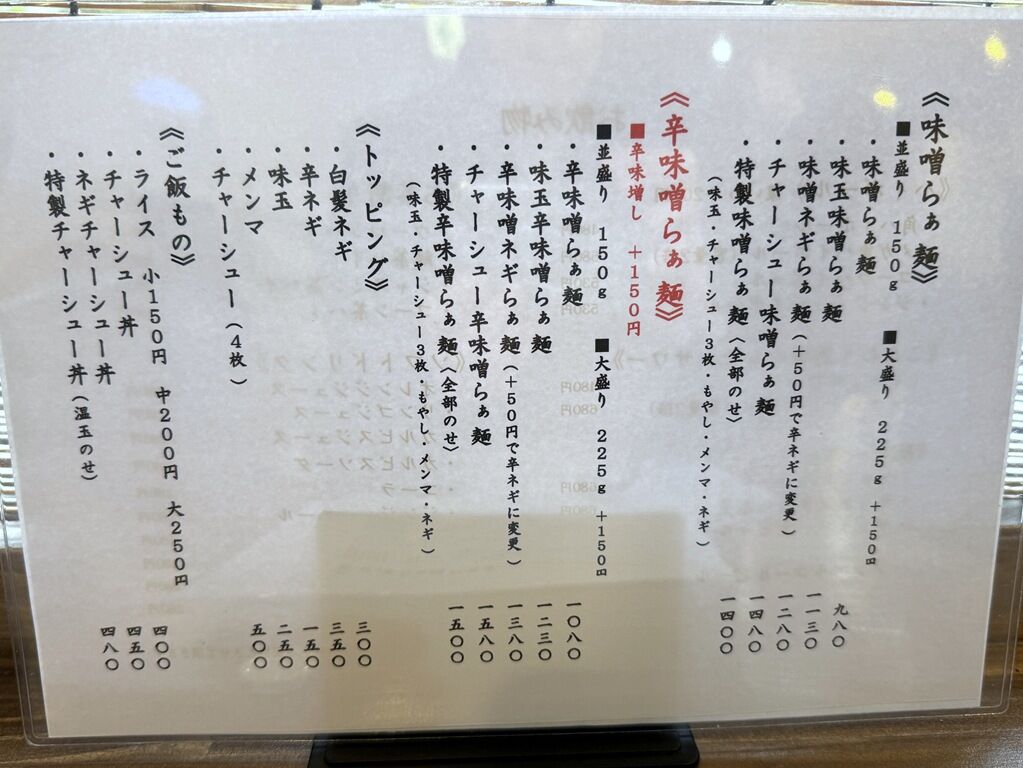 《味噌らぁ麺》
■並盛り 150g ■大盛り 225g +150円
・味噌らぁ麺 九八〇
・味玉味噌らぁ麺 一一三〇
・味噌ネギらぁ麺(+50円で辛ネギに変更) 一二八〇
・チャーシュー味噌らぁ麺 一四八〇
・特製味噌らぁ麺〈全部のせ〉 一四〇〇
(味玉・チャーシュー3枚・もやし・メンマ・ネギ)
《辛味噌らぁ麺》
■辛味増し +150円
■並盛り 150g ■大盛り 225g +150円
・辛味噌らぁ麺 一〇八〇
・味玉辛味噌らぁ麺 一二三〇
・辛味噌ネギらぁ麺(+50円で辛ネギに変更) 一三八〇
・チャーシュー辛味噌らぁ麺 一五八〇
・特製辛味噌らぁ麺〈全部のせ〉 一五〇〇
(味玉・チャーシュー3枚・もやし・メンマ・ネギ)
《トッピング》
・白髪ネギ 三〇〇
・辛ネギ 三五〇
・味玉 一五〇
・メンマ 二五〇
・チャーシュー(4枚) 五〇〇
《ご飯もの》
・ライス 小150円 中200円 大250円
・チャーシュー丼 四〇〇
・ネギチャーシュー丼 四五〇
・特製チャーシュー丼(温玉のせ) 四八〇